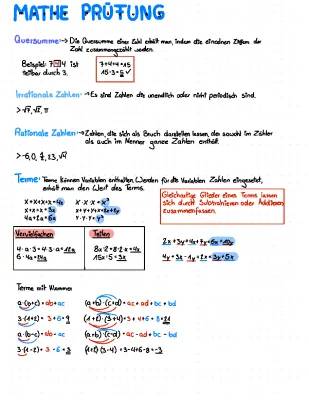 MATHE PRÜFUNG
Quersumme:→ Die Quersumme einer Zahl erhält man, indem die einzelnen Ziffern der
Zahl zusammengezählt werden.
Beispiel: 744 ist
teilbar durch 3.
7+4+4=15
15:3=5 ✓
Irrationale Zahlen:→ Es sind Zahlen die unendlich oder nicht periodisch sind.
Rationale Zahlen:→ Zahlen, die sich als Bruch darstellen lassen, der sowohl im Zähler
als auch im Nenner ganze Zahlen enthält.
Terme: Terme können Variablen enthalten. Werden für die Variablen Zahlen eingesetzt,
erhält man den Wert des Terms.
x+x+x+x=4x
x·x·x=x³
x+x+x=3x
4a+2a=6a
y·y·y=y³
Gleichartige Glieder eines Terms lassen
sich durch Subtrahieren oder Addieren
zusammenfassen.
Vervielfachen
Teilen
4·a·3=4·3·a=12a
6·4a=24a
8x:2=8:2·x=4x
15x:5=3x
2x+3y+4x+7y=6x+10y
4y+3x-1y+2x=3y+5x
Terme mit Klammer
a·(b+c)=ab+ac
(a+b)·(c+d)=ac+ad+bc+bd
3·(1+2)=3+6=9
(1+2)·(3+4)=3+4+6+8=21
a·(b-c)=ab-ac
(a+b)·(c-d)=ac-ad+bc-bd
3·(1-2)=3-6=-3
(1+2)·(3-4)=3-4+6-8=-3